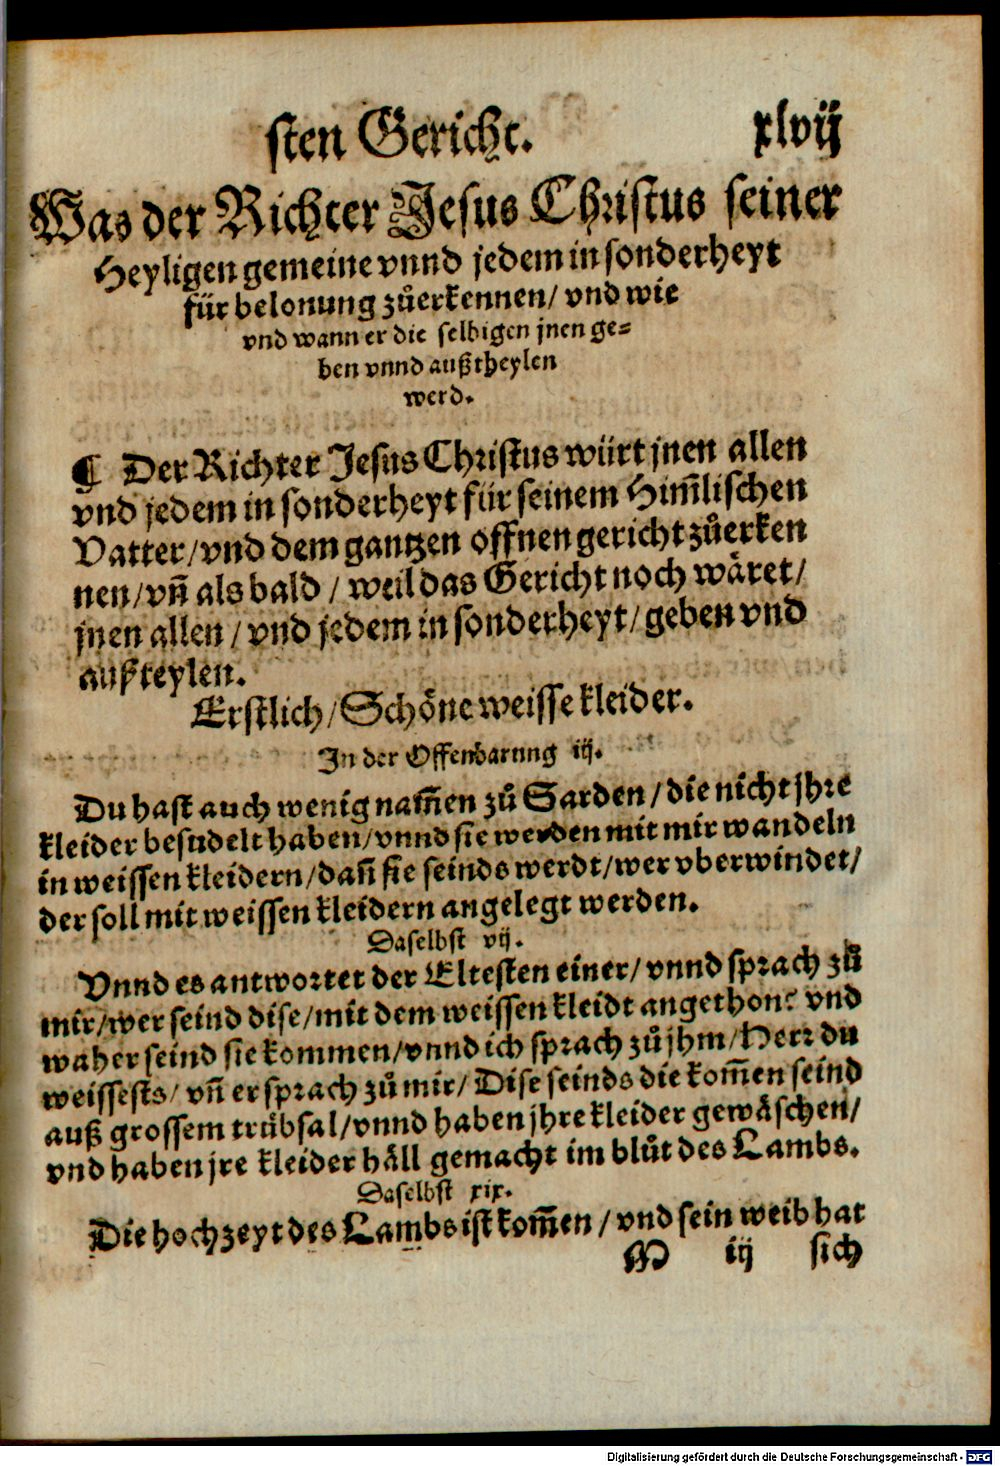 sten Gericht. xlvij
Was der Richter Jesus Christus seiner
Heyligen gemeine vnnd jedem in sonderheyt
für belonung zůerkennen/ vnd wie
vnd wann er die selbigen jnen ge=
ben vnnd außtheylen
werd.
¶ Der Richter Jesus Christus würt jnen allen
vnd jedem in sonderheyt für seinem Him̃lischen
Vatter/vnd dem gantzen offnen gericht zůerken
nen/vn̄ als bald / weil das Gericht noch wäret/
jnen allen / vnd jedem in sonderheyt/ geben vnd
außteylen.
Erstlich/Schöne weisse kleider.
In der Offenbarung iij.
Du hast auch wenig nam̃en zů Sarden/die nicht jhre
kleider besudelt haben/vnnd sie werden mit mir wandeln
in weissen kleidern/dan̄ sie seinds werdt/wer vberwindet/
der soll mit weissen kleidern angelegt werden.
Daselbst vij.
Vnnd es antwortet der Eltesten einer/ vnnd sprach zů
mir/wer seind dise/mit dem weissen kleidt angethon? vnd
waher seind sie kommen/vnnd ich sprach zů jhm/Herr du
weissests/ vn̄ er sprach zů mir/ Dise seinds die kom̃en seind
auß grossem trübsal/vnnd haben jhre kleider gewäschen/
vnd haben jre kleider häll gemacht im blůt des Lambs.
Daselbst xix.
Die hochzeyt des Lambs ist kom̃en / vnd sein weib hat
M iij sich
Digitalisierung gefördert durch die Deutsche Forschungsgemeinschaft - DFG